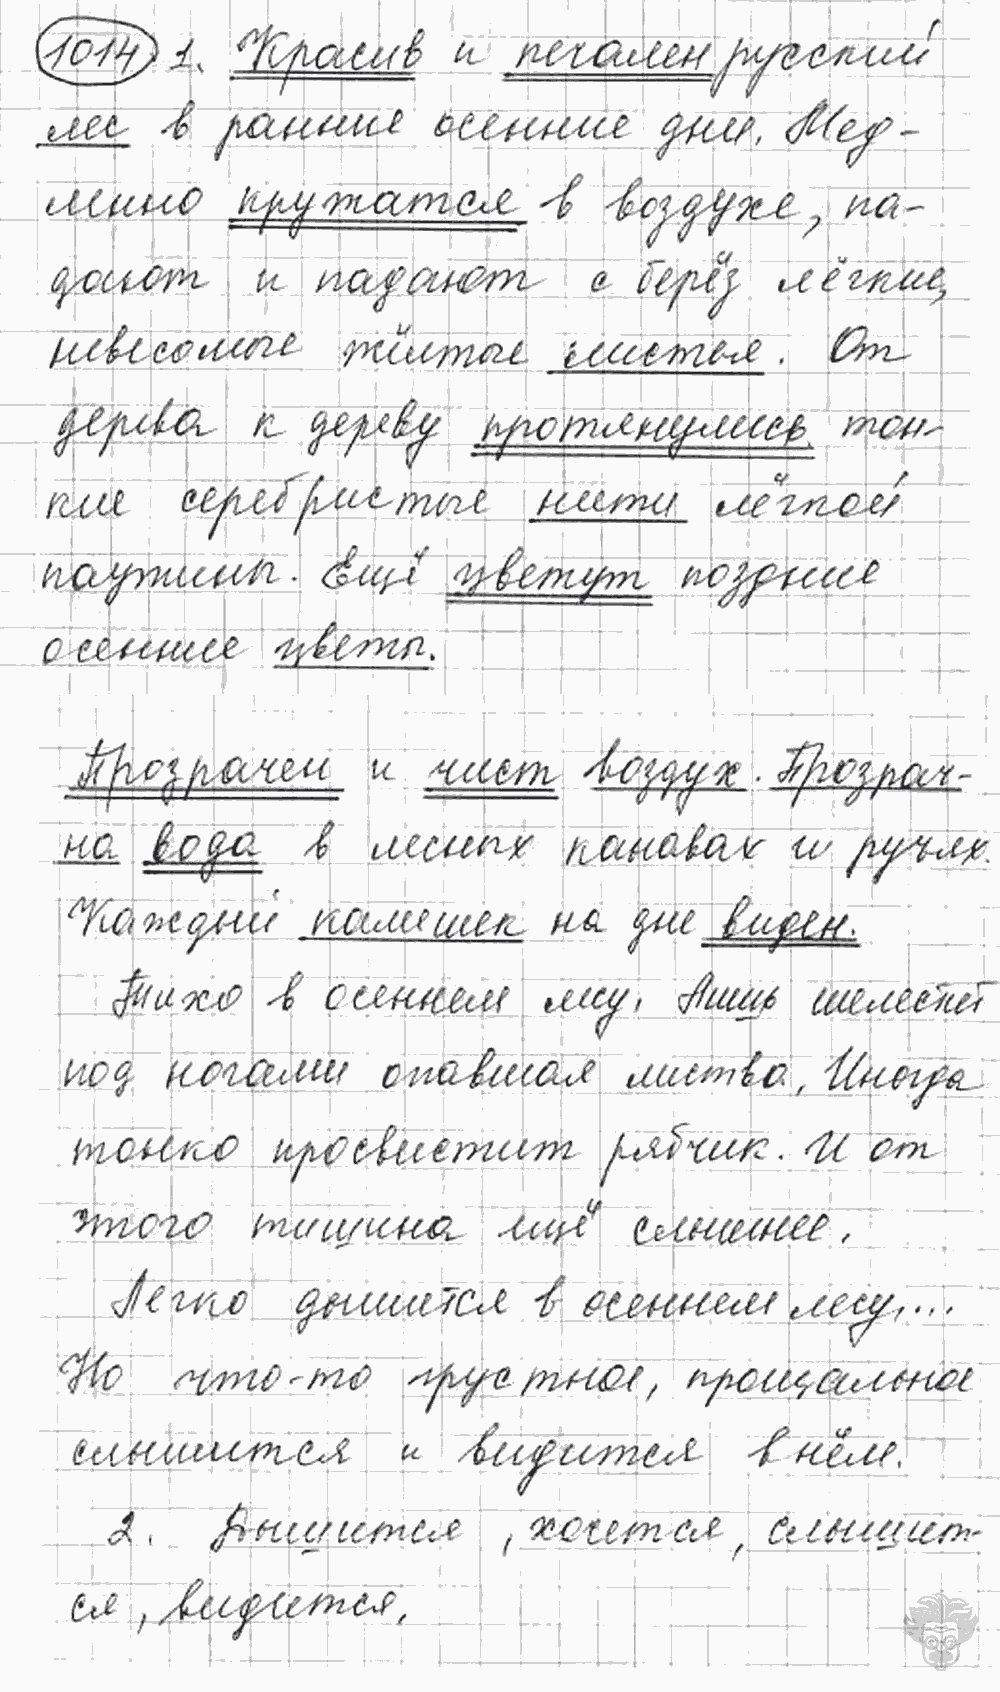 1014 1. Красив и печален русский
лес в ранние осенние дни. Мед-
ленно кружатся в воздухе, па-
дают и падают с берёз лёгкие,
невесомые жёлтые листья. От
дерева к дереву протянулись тон-
кие серебристые нити лёгкой
паутины. Ещё цветут поздние
осенние цветы.
Прозрачен и чист воздух. Прозрач-
на вода в лесных канавах и ручьях.
Каждый камешек на дне виден.
Тихо в осеннем лесу. Лишь шелестит
под ногами опавшая листва, Иногда
тонко просвистит рябчик. И от
этого тишина ещё слышнее.
Легко дышится в осеннем лесу....
Но что-то грустное, прощальное
слышится и видится в нём.
2. Дышится, хочется, слышит-
ся, видится.